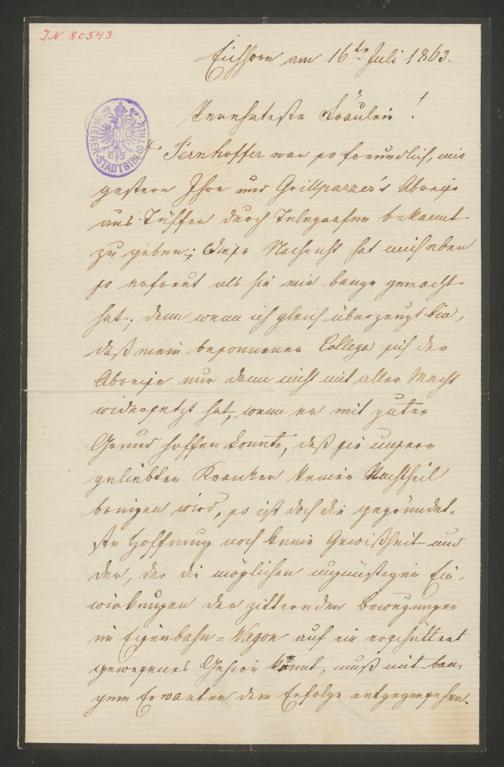 IN 80543
Eichhorn am 16ts Juli 1863.
Verehrteste Fräulein!
WIENER-STADTBIBLIOTHEK
Pernhoffer war so freundlich, mir
gestern Ihre und Grillparzer's Abreise
aus Tüffer durch Telegrafen bekannt
zu geben; diese Nachricht hat mich eben
so erfreut als sie mir bange gemacht
hat; denn wenn ich gleich überzeugt bin,
daß mein besonnener College sich der
Abreise nur dann nicht mit aller Macht
widersetzt hat, wenn er mit gutem
Grund hoffen konnte, daß sie unserm
geliebten Kranken keinen Nachtheil
bringen wird, so ist doch die gegründet-
ste Hoffnung noch keine Gewißheit und
der, der die möglichen ungünstigen Ein-
wirkungen der zitternden Bewegungen
im Eisenbahn-Wagon auf ein erschüttert
gewesenes Gehirn kennt, muß mit ban-
gem Erwarten dem Erfolge entgegensehen.